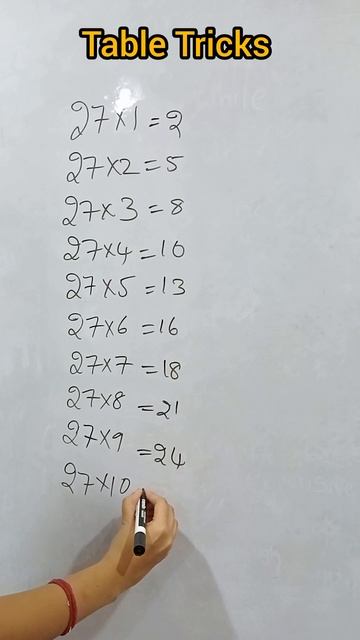 Table Tricks
27×1=2
27×2=5
27×3=8
27×4=10
27×5=13
27×6=16
27×7=18
27×8=21
27×9=24
27×10